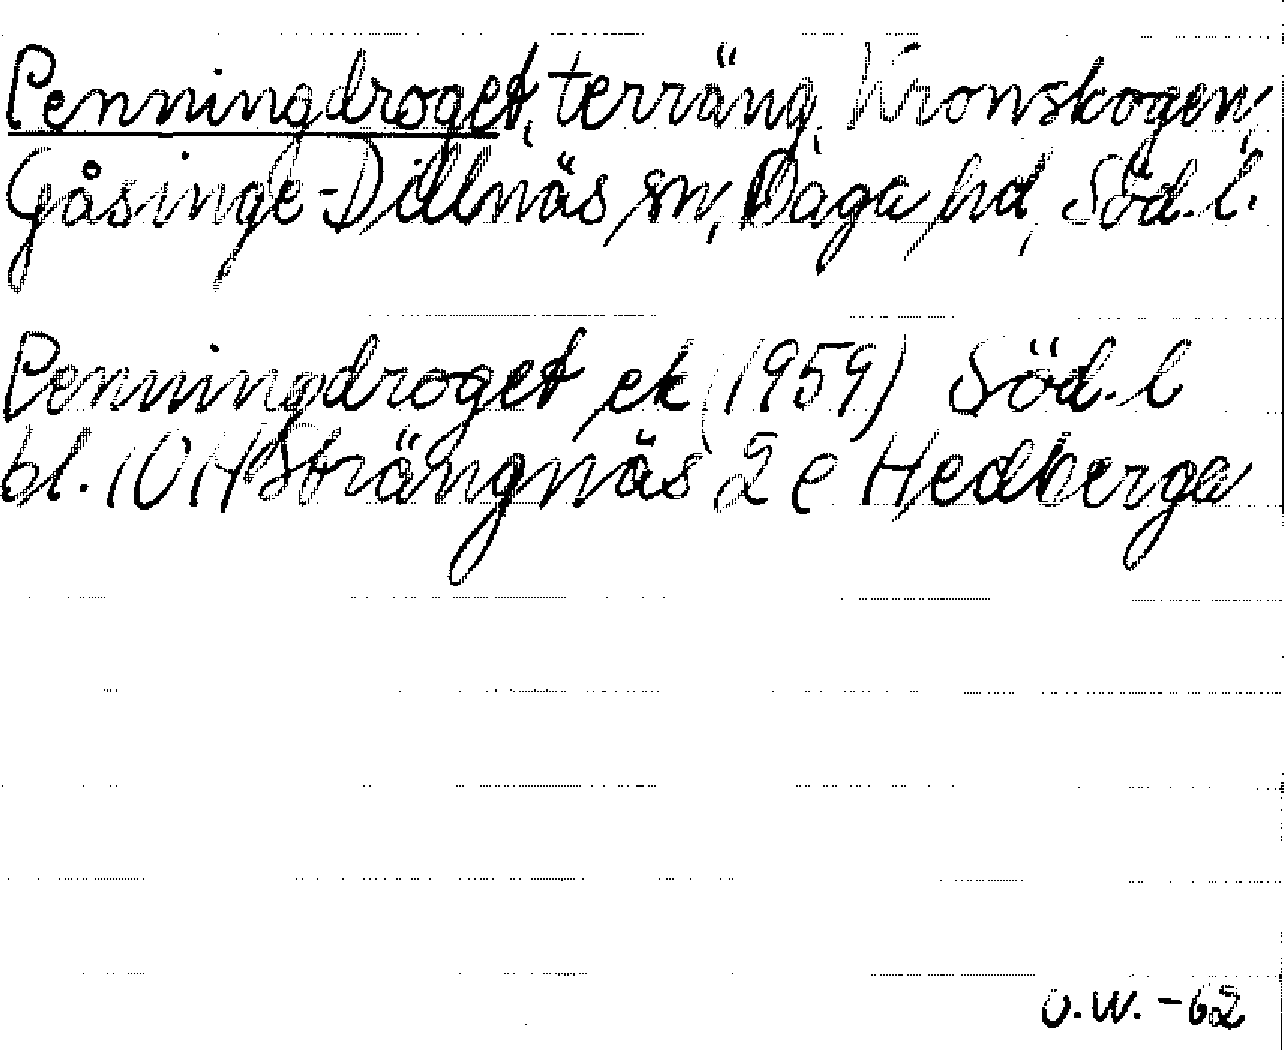 Penningdroget, terräng, Kronskogen,
Gåsinge-Dillnäs sn, Daga hd, Söd.l.
Penningdroget ek (1959) Söd.l
bl. 10H Strängnäs 2 e Hedberga
O.W. -62